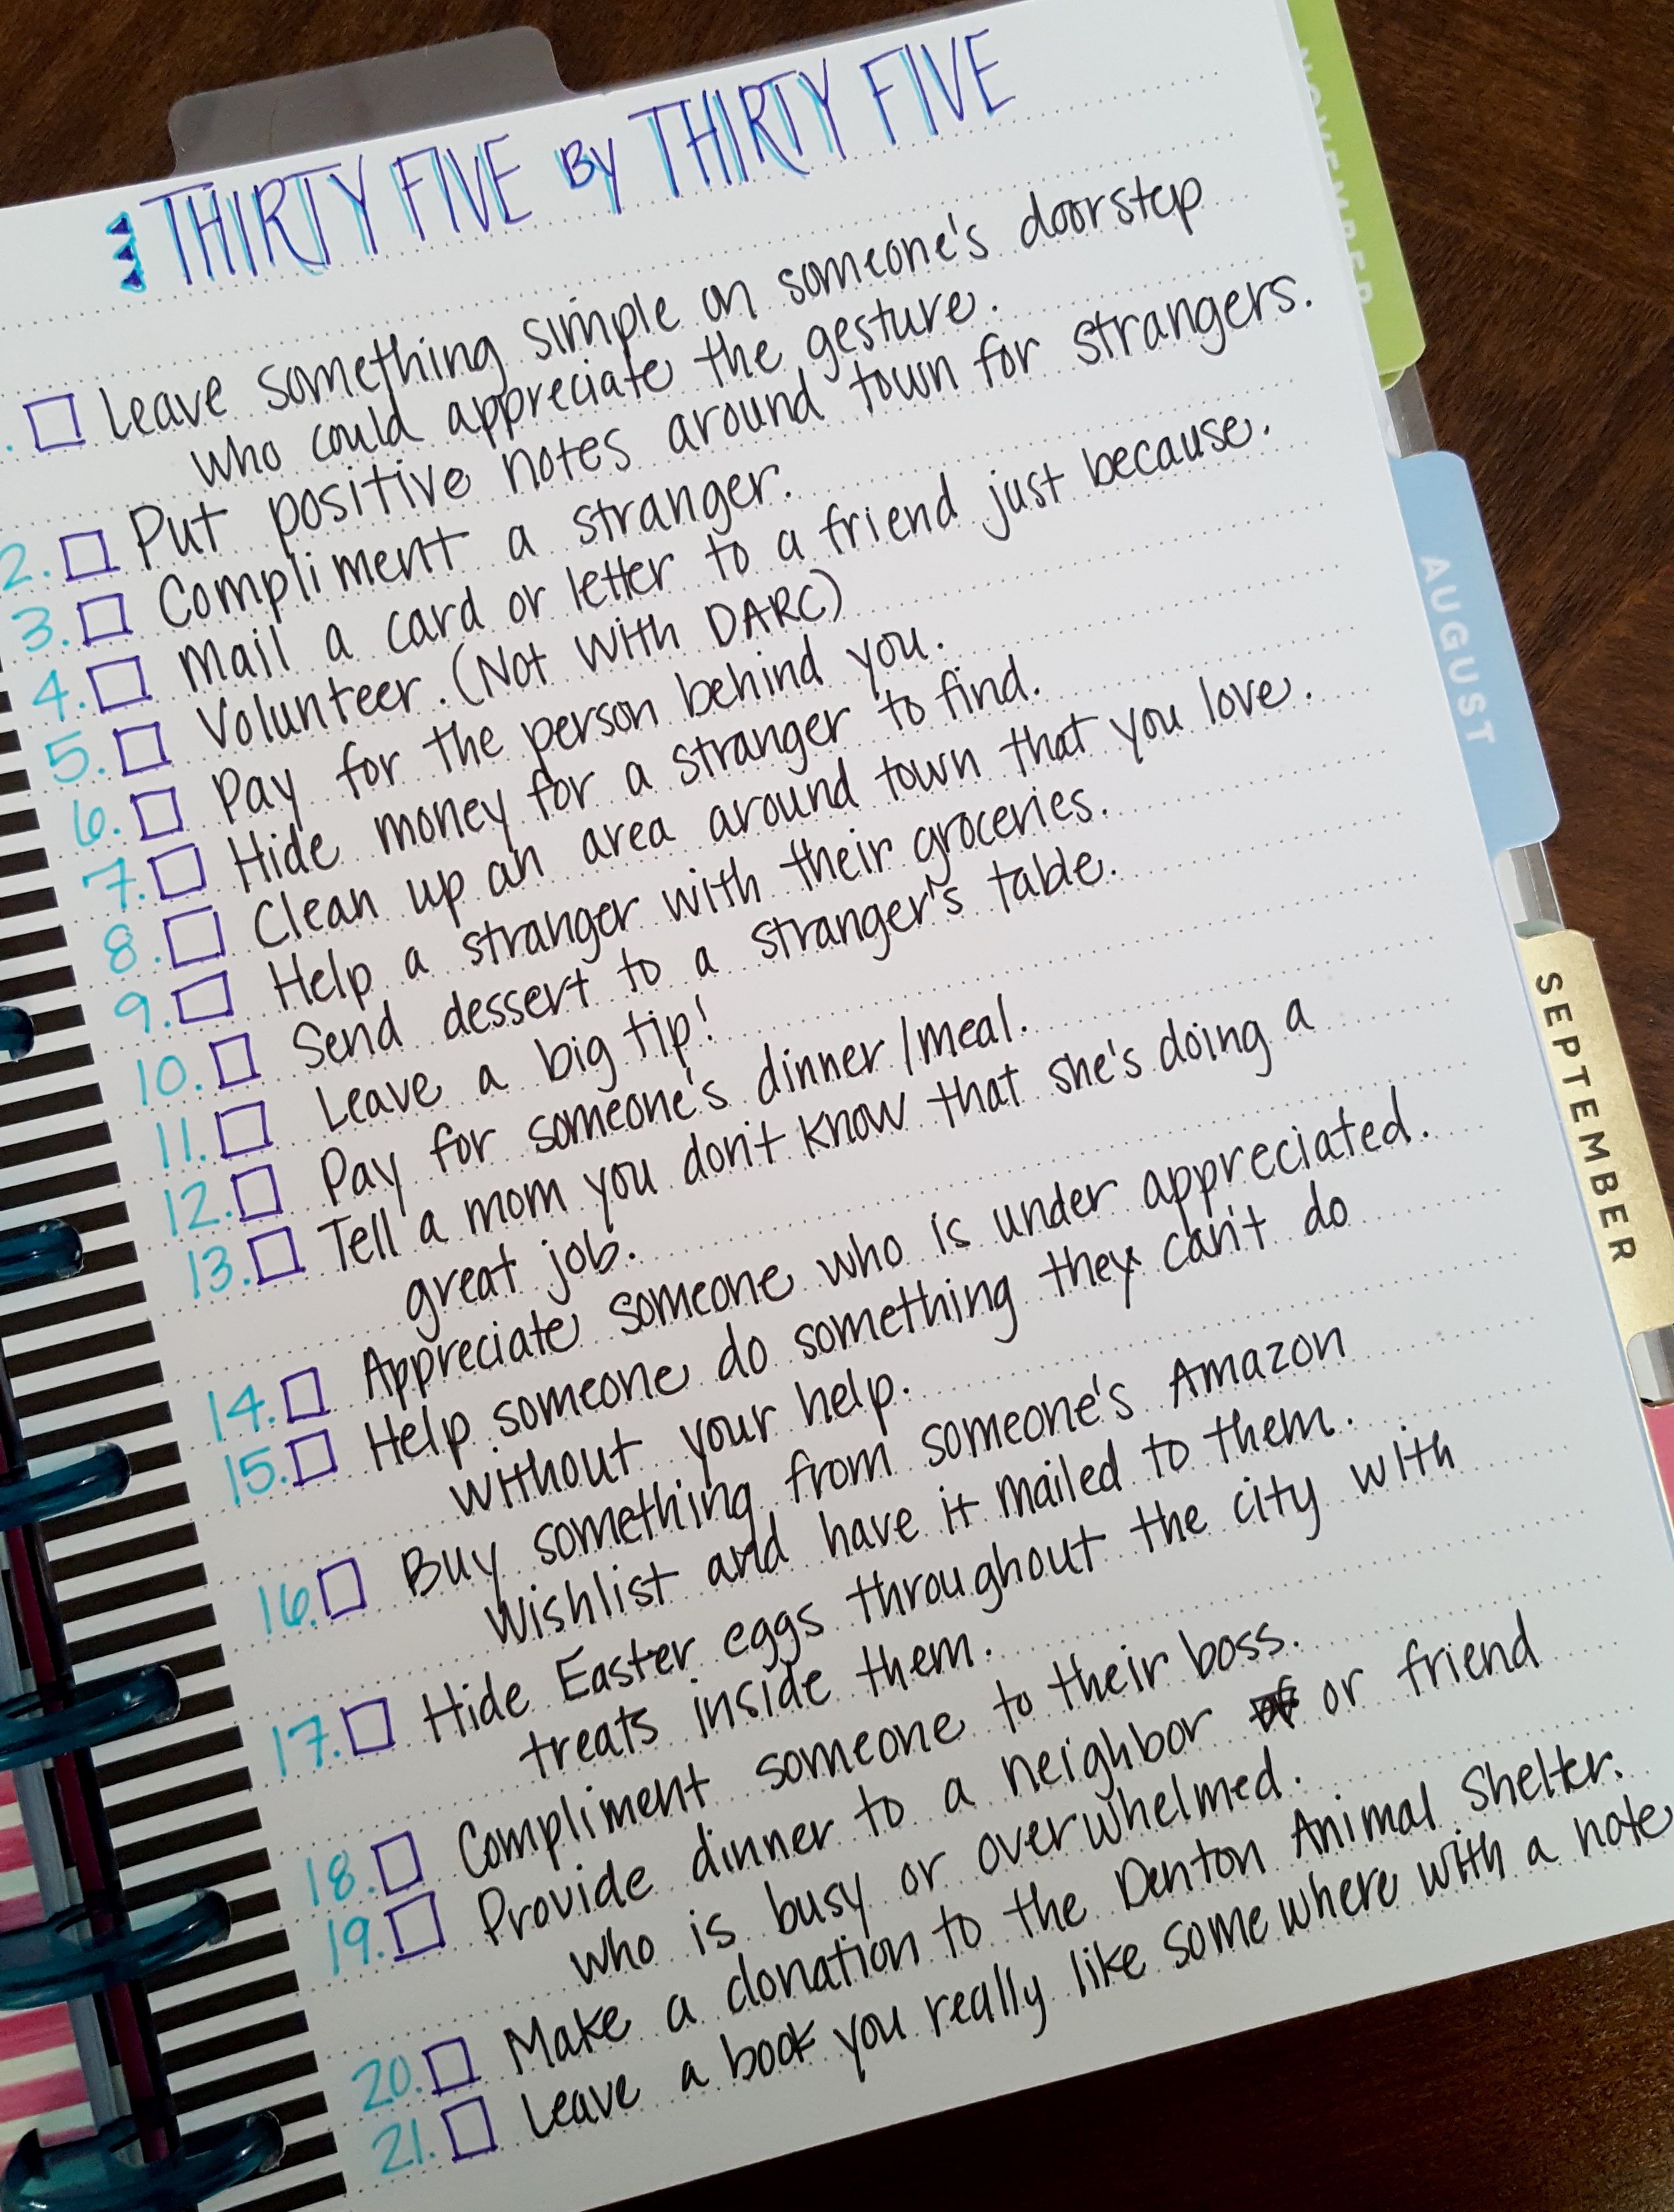 THIRTY FIVE BY THIRTY FIVE
. Leave something simple on someone's doorstep
who could appreciate the gesture.
2. Put positive notes around town for strangers.
3. Compliment a stranger.
4. Mail a card or letter to a friend just because.
5. Volunteer. (Not with DARC)
6. Pay for the person behind you.
7. Hide money for a stranger to find.
8. Clean up an area around town that you love.
9. Help a stranger with their groceries.
10. Send dessert to a stranger's table.
11. Leave a big tip!
12. Pay for someone's dinner/meal.
13. Tell a mom you don't know that she's doing a
great job.
14. Appreciate someone who is under appreciated.
15. Help someone do something they can't do
without your help.
16. Buy something from someone's Amazon
Wishlist and have it mailed to them.
17. Hide Easter eggs throughout the city with
treats inside them.
18. Compliment someone to their boss.
19. Provide dinner to a neighbor or friend
who is busy or overwhelmed.
20. Make a donation to the Denton Animal Shelter.
21. Leave a book you really like somewhere with a note
NOVEMBER
AUGUST
SEPTEMBER